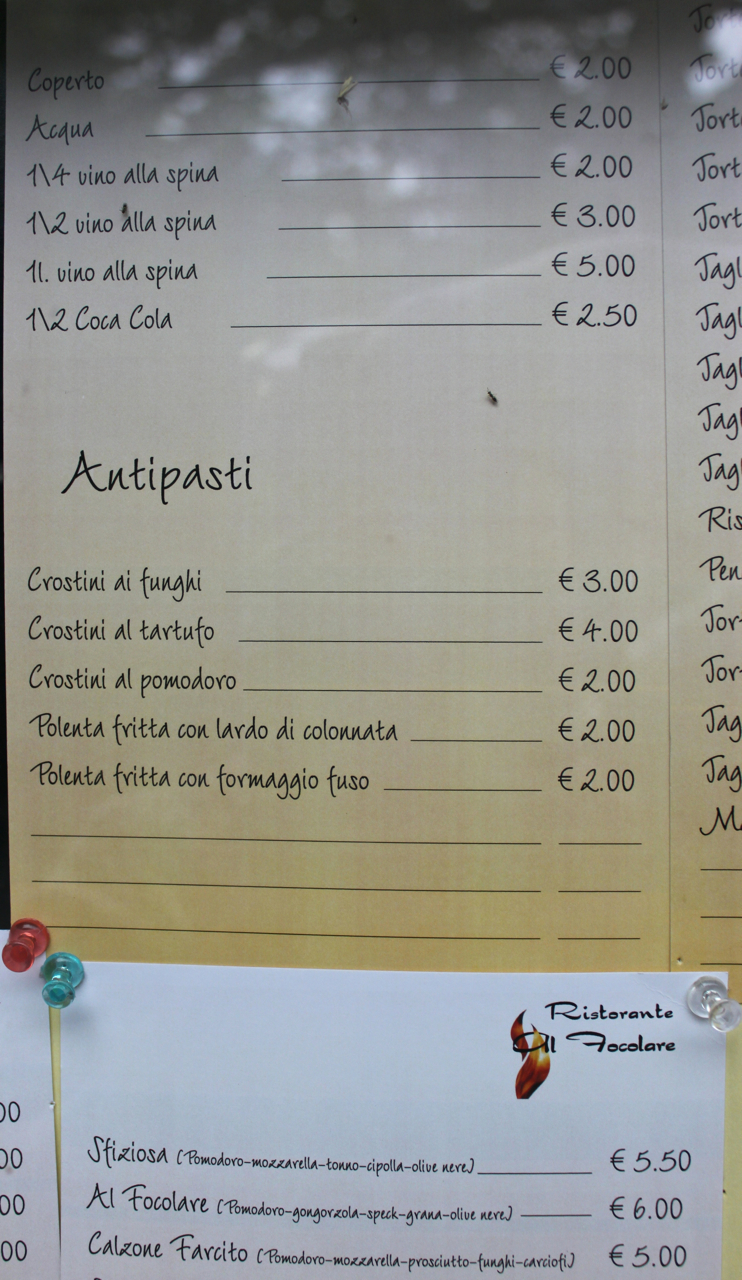 Coperto € 2.00
Acqua € 2.00
1\4 vino alla spina € 2.00
1\2 vino alla spina € 3.00
1l. vino alla spina € 5.00
1\2 Coca Cola € 2.50
Antipasti
Crostini ai funghi € 3.00
Crostini al tartufo € 4.00
Crostini al pomodoro € 2.00
Polenta fritta con lardo di colonnata € 2.00
Polenta fritta con formaggio fuso € 2.00
Ristorante
Al Focolare
Sfiziosa (Pomodoro-mozzarella-tonno-cipolla-olive nere) € 5.50
Al Focolare (Pomodoro-gongorzola-speck-grana-olive nere) € 6.00
Calzone Farcito (Pomodoro-mozzarella-prosciutto-funghi-carciofi) € 5.00